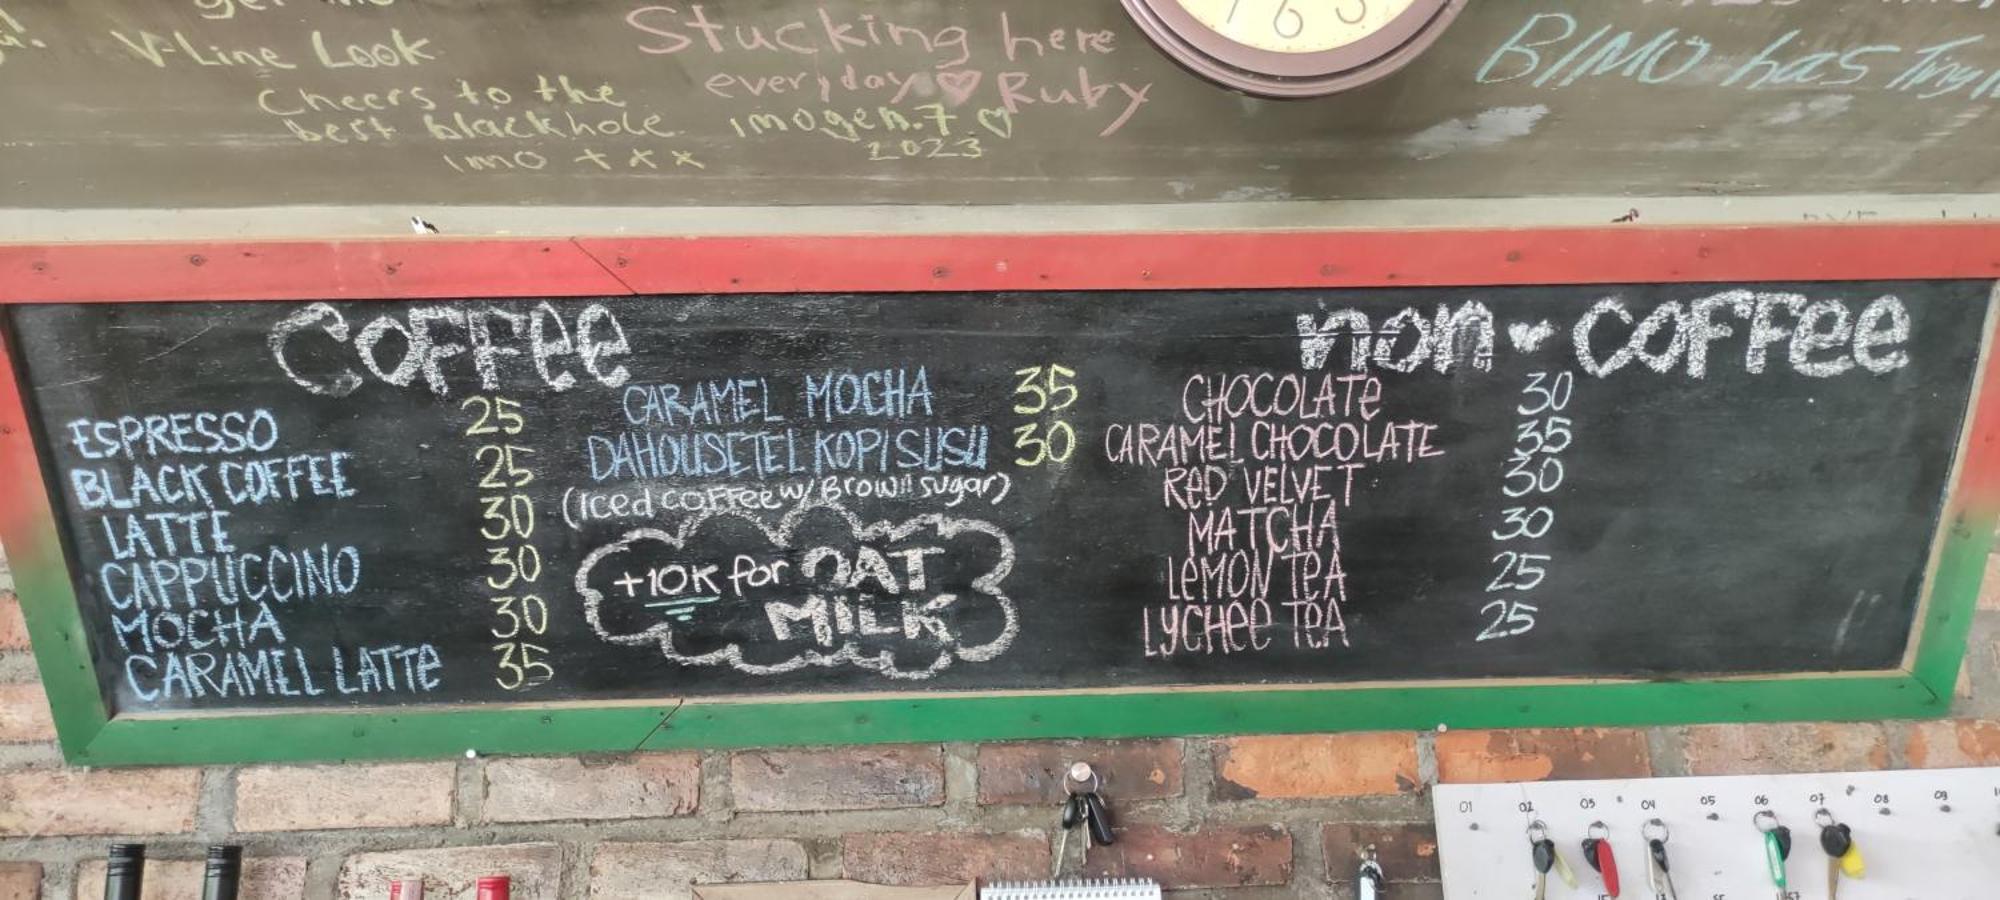 V-Line Look
Cheers to the
best blackhole
imo + x x
Stucking here
everyday ♡ Ruby
imogen.7 ♡
2023
BIMO has Tiny
Coffee
ESPRESSO 25
BLACK COFFEE 25
LATTE 30
CAPPUCCINO 30
MOCHA 30
CARAMEL LATTE 35
CARAMEL MOCHA 35
DAHOUSETEL KOPI SUSU 30
(Iced coffee w/ Brown sugar)
+10K for OAT
MILK
non-coffee
CHOCOLATE 30
CARAMEL CHOCOLATE 35
RED VELVET 30
MATCHA 30
LEMON TEA 25
LYCHEE TEA 25
01 02 03 04 05 06 07 08 09